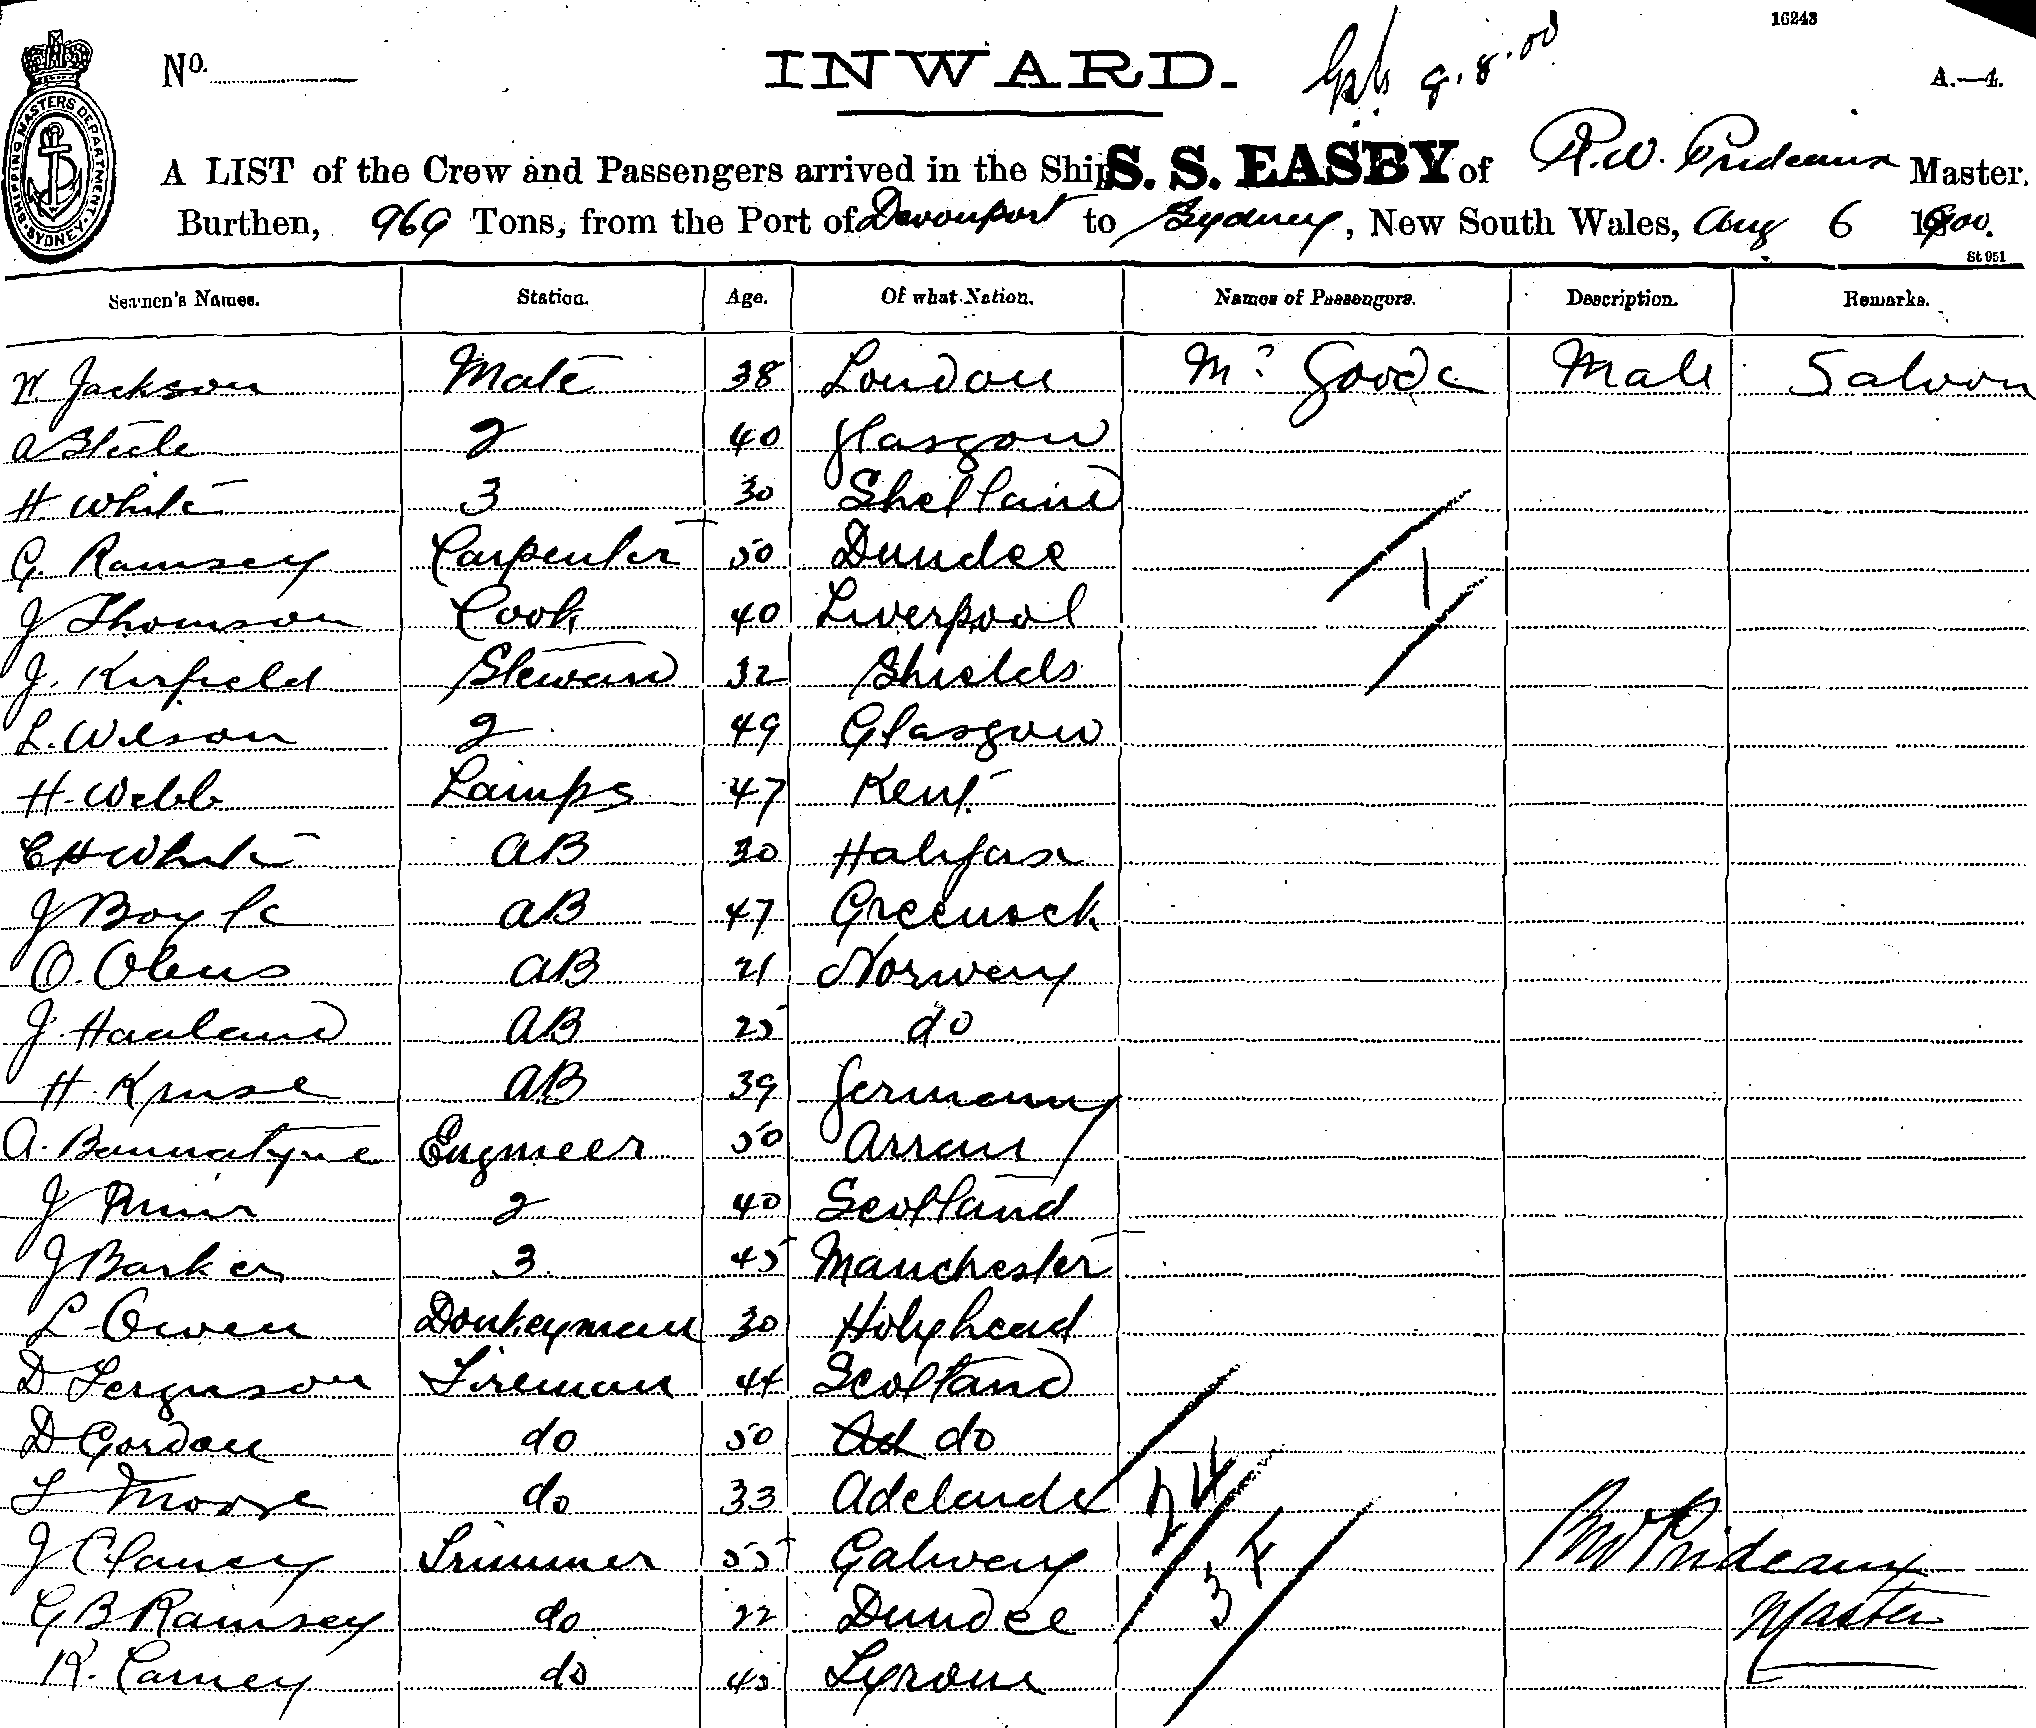 16243
No.
INWARD.
9.8.00
A.—4.
SHIPPING MASTERS DEPARTMENT SYDNEY
A LIST of the Crew and Passengers arrived in the Ship S. S. EASBY of R. W. Prideaux Master.
Burthen, 969 Tons, from the Port of Devonport to Sydney, New South Wales, Aug 6 1900.
St 951
Seamen's Names. Station. Age. Of what Nation. Names of Passengers. Description. Remarks.
W Jackson Mate 38 London Mr Goode Male Saloon
A Steele 2 40 Glasgow
H. White 3 30 Shetland
G. Ramsey Carpenter 50 Dundee
1
J Thomson Cook 40 Liverpool
J. Kirfield Steward 32 Shields
L. Wilson 2 49 Glasgow
H. Webb Lamps 47 Kent
C H White AB 30 Halifax
J Boyle AB 47 Greenock
O. Olens AB 21 Norway
J. Haaland AB 25 do
H. Kruse AB 39 Germany
A. Bannatyne Engineer 50 Arran
J 2 40 Scotland
J Barker 3 45 Manchester
L Owen Donkeyman 30 Holyhead
D Ferguson Fireman 44 Scotland
D Gordon do 50 Ad do
T Moore do 33 Adelaide 24
J Clancy Trimmer 55 Galway 34 RW Prideaux
G B Ramsey do 22 Dundee Master
R. Carney do 45 Tyrone